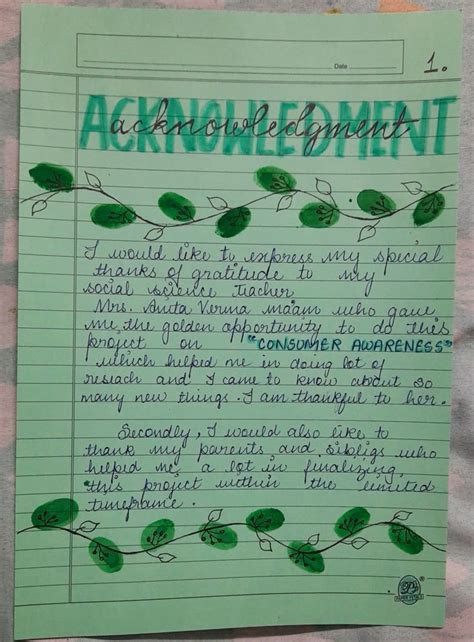 Date
1.
ACKNOWLEDMENT
acknowledgment
I would like to express my special
thanks of gratitude to my
social science teacher
Mrs. Anita Verma ma'am who gave
me, the golden opportunity to do this
project on "CONSUMER AWARENESS"
which helped me in doing lot of
reseach and I came to know about so
many new things. I am thankful to her.
Secondly, I would also like to
thank my parents and sibligs who
helped me a lot in finalizing
this project within the limited
timeframe.